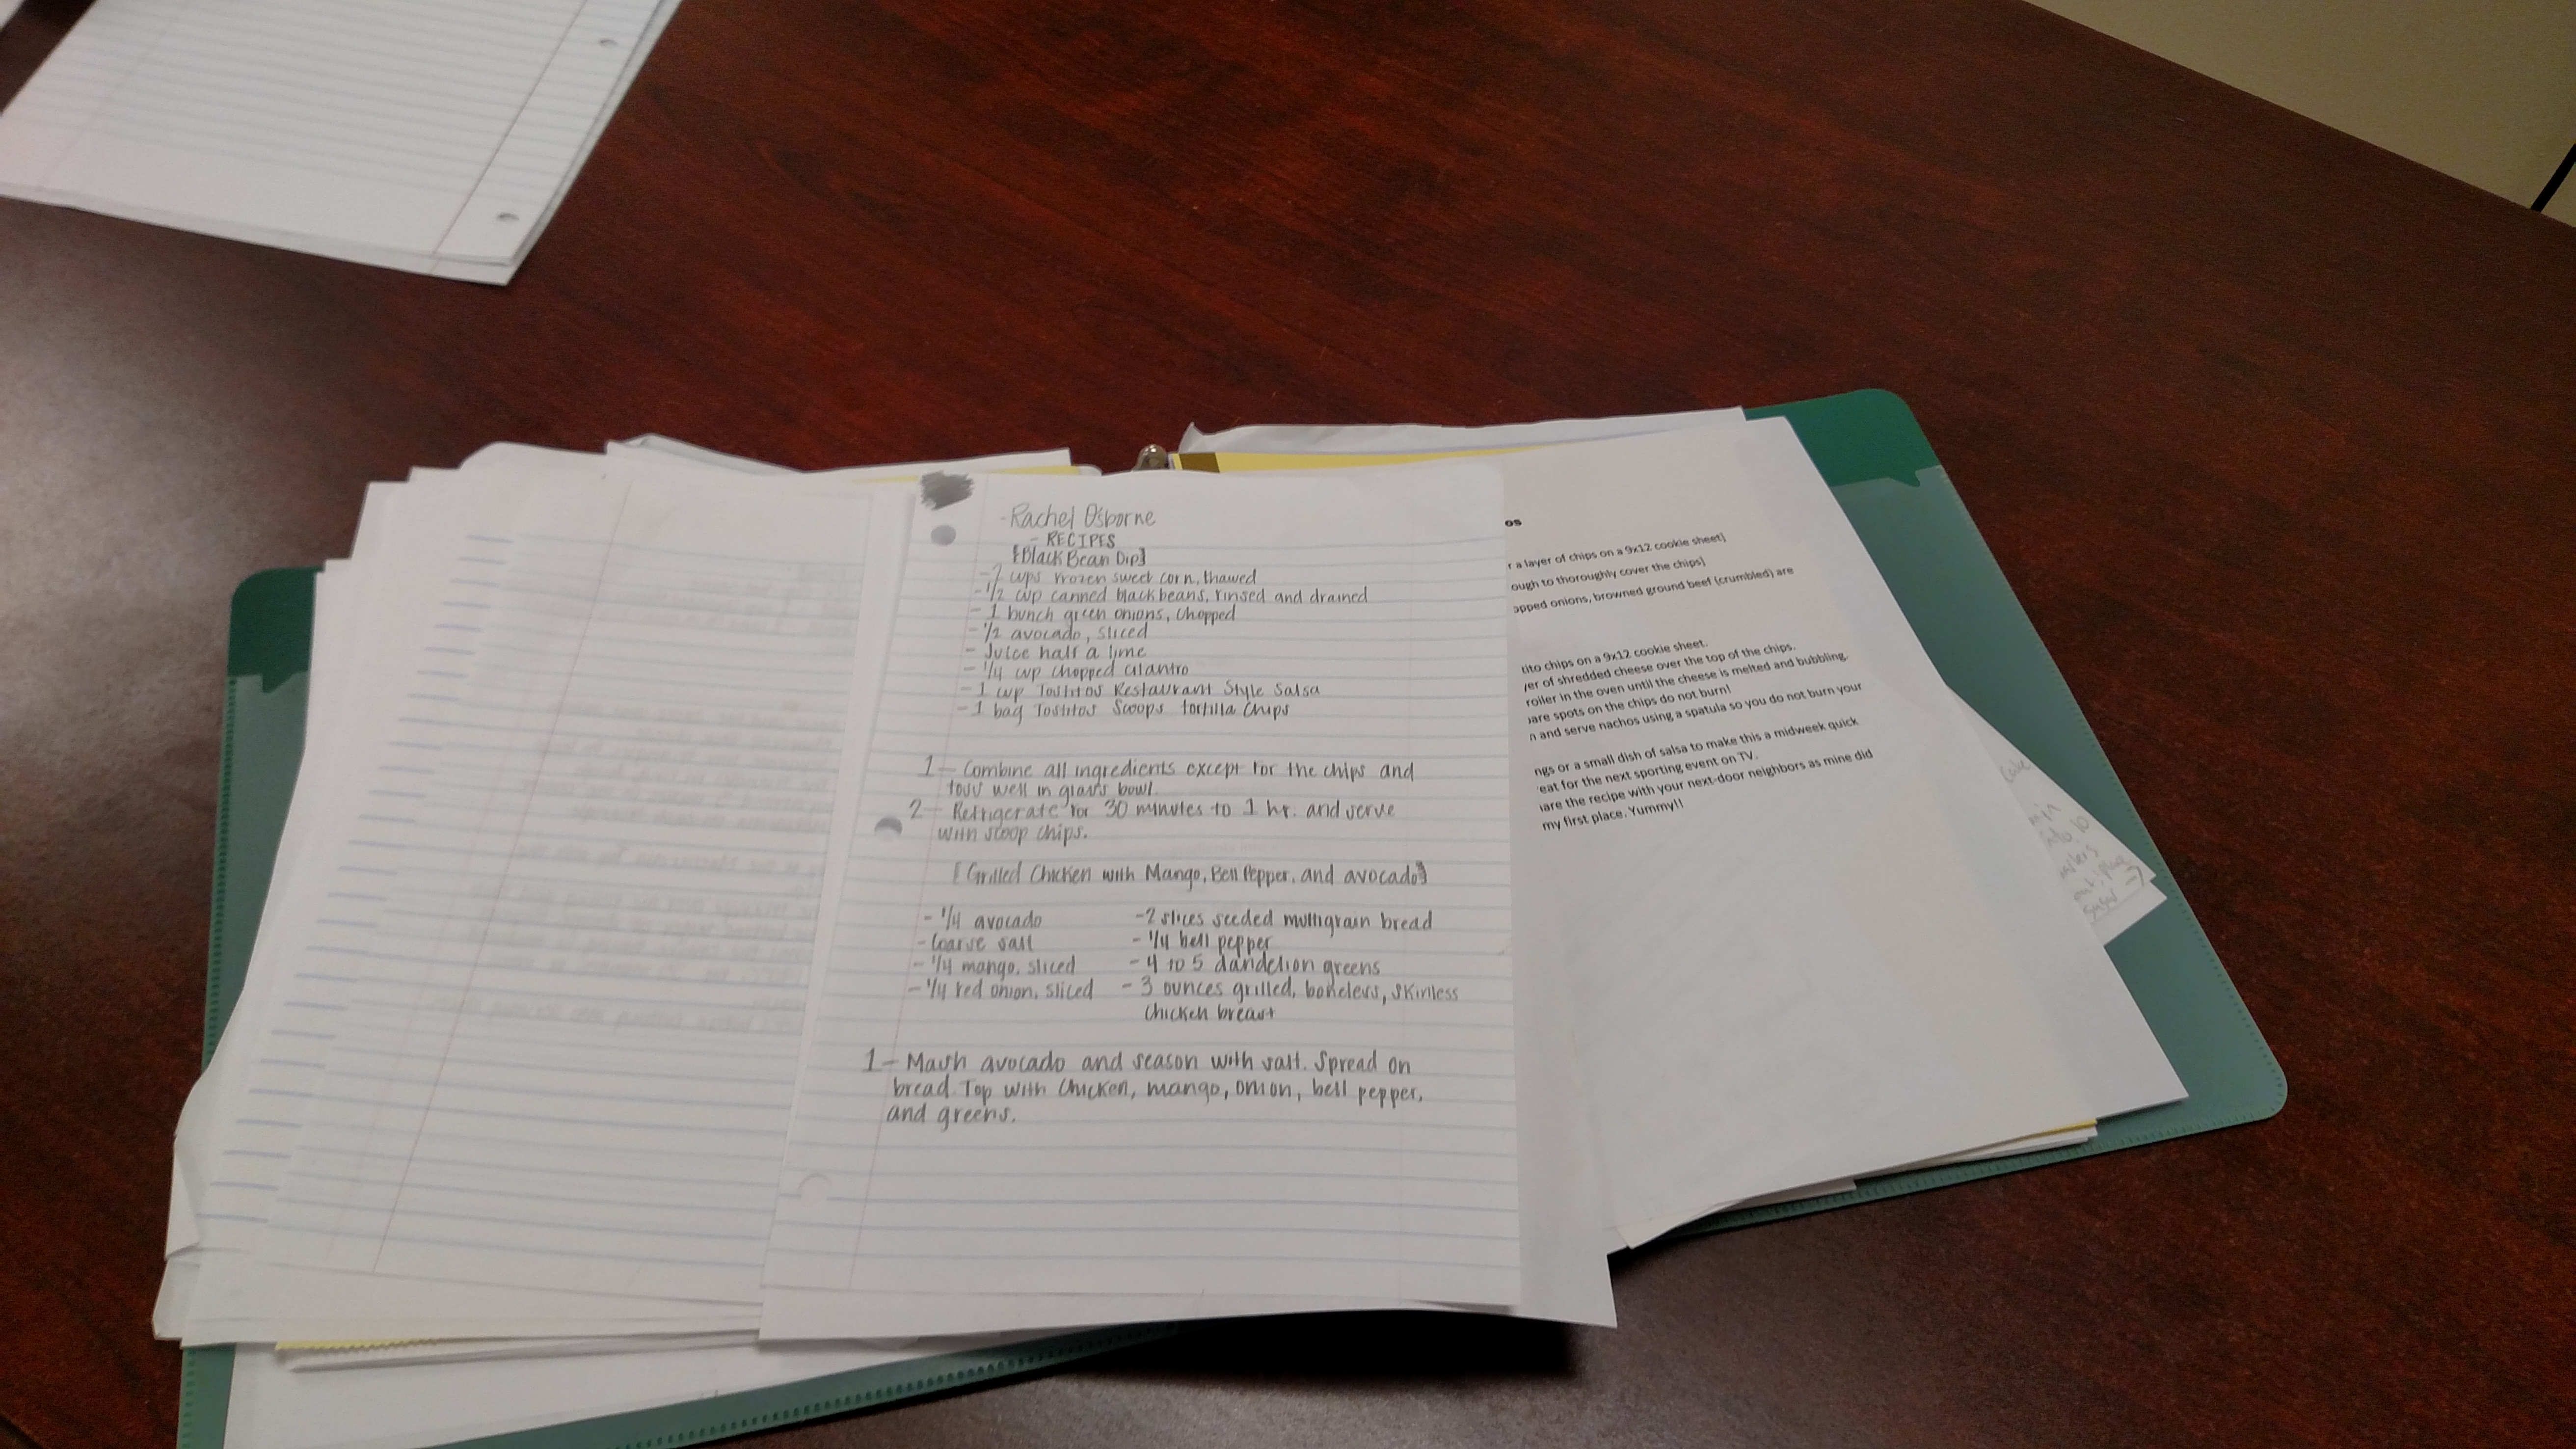 -Rachel Osborne
- RECIPES
[Black Bean Dip]
-2 cups frozen sweet corn, thawed
-1/2 cup canned black beans, rinsed and drained
- 1 bunch green onions, chopped
-1/2 avocado, sliced
- Juice half a lime
-1/4 cup chopped cilantro
-1 cup Tostitos Restaurant Style Salsa
-1 bag Tostitos Scoops tortilla chips
1- Combine all ingredients except for the chips and
toss well in glass bowl.
2- Refrigerate for 30 minutes to 1 hr. and serve
with scoop chips.
[Grilled Chicken with Mango, Bell Pepper, and avocado]
- 1/4 avocado
- Coarse salt
- 1/4 mango, sliced
- 1/4 red onion, sliced
-2 slices seeded multigrain bread
- 1/4 bell pepper
- 4 to 5 dandelion greens
- 3 ounces grilled, boneless, skinless
chicken breast
1- Mash avocado and season with salt. Spread on
bread. Top with chicken, mango, onion, bell pepper,
and greens.
os
r a layer of chips on a 9x12 cookie sheet]
ough to thoroughly cover the chips]
opped onions, browned ground beef (crumbled) are
tito chips on a 9x12 cookie sheet.
yer of shredded cheese over the top of the chips.
roiler in the oven until the cheese is melted and bubbling.
are spots on the chips do not burn!
n and serve nachos using a spatula so you do not burn your
ngs or a small dish of salsa to make this a midweek quick
eat for the next sporting event on TV.
are the recipe with your next-door neighbors as mine did
my first place. Yummy!!